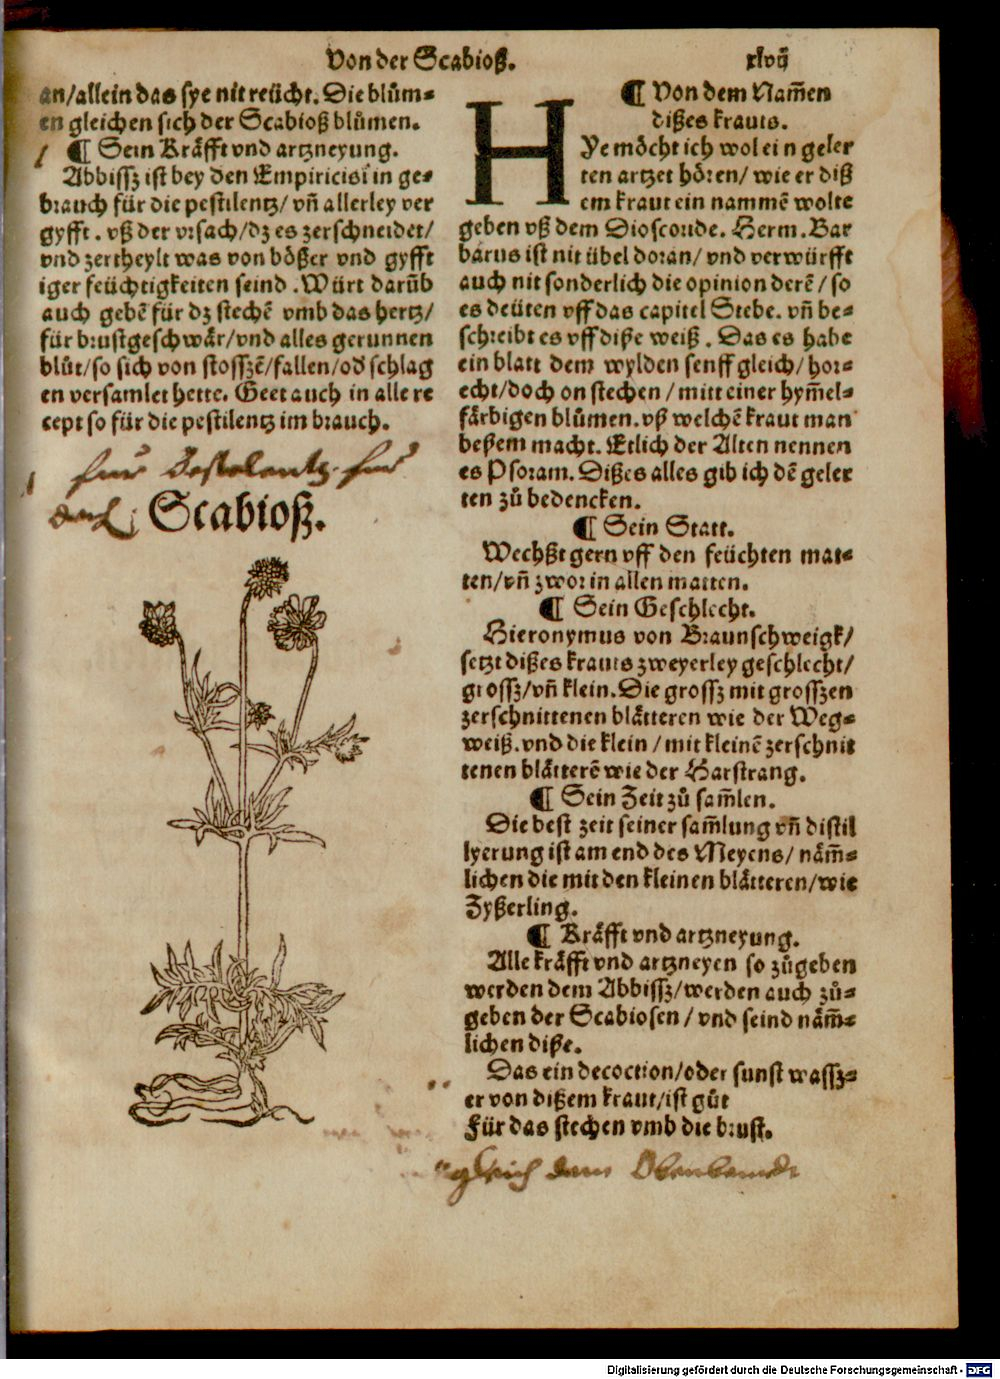 Von der Scabioß.
xlvij
an/allein das sye nit reücht. Die blům⸗
en gleichen sich der Scabioß blůmen.
¶ Sein Kräfft vnd artzneyung.
Abbissz ist bey den Empiricis in ge⸗
brauch für die pestilentz/ vn̄ allerley ver
gyfft. vß der vrsach/dz es zerschneidet/
vnd zertheylt was von bößer vnd gyfft
iger feüchtigkeiten seind. Würt darūb
auch gebē für dz stechē vmb das hertz/
für brustgeschwär/vnd alles gerunnen
blůt/so sich von stosszē/fallen/od schlag
en versamlet hette. Geet auch in alle re
cept so für die pestilentz im brauch.
für Pestelentz für
Scabioß.
¶ Von dem Nam̄en
dißes krauts.
HYe möcht ich wol ein geler
ten artzet hören/ wie er diß
em kraut ein nammē wolte
geben vß dem Dioscoride. Herm. Bar
barus ist nit übel doran/ vnd verwürfft
auch nit sonderlich die opinion derē/ so
es deüten vff das capitel Stebe. vn̄ be⸗
schreibt es vff diße weiß. Das es habe
ein blatt dem wylden senff gleich/ hor⸗
echt/doch on stechen/ mitt einer hym̄el⸗
färbigen blůmen. vß welchē kraut man
beßem macht. Etlich der Alten nennen
es Psoram. Dißes alles gib ich dē geler
ten zů bedencken.
¶ Sein Statt.
Wechßt gern vff den feüchten mat⸗
ten/vn̄ zwor in allen matten.
¶ Sein Geschlecht.
Hieronymus von Braunschweigk/
setzt dißes krauts zweyerley geschlecht/
grossz/vn̄ klein. Die grossz mit grosszen
zerschnittenen blätteren wie der Weg⸗
weiß. vnd die klein/ mit kleinē zerschnit
tenen blätterē wie der Harstrang.
¶ Sein Zeit zů sam̄len.
Die best zeit seiner sam̄lung vn̄ distil
lyerung ist am end des Meyens/ näm̄⸗
lichen die mit den kleinen blätteren/wie
Zyßerling.
¶ Kräfft vnd artzneyung.
Alle kräfft vnd artzneyen so zůgeben
werden dem Abbissz/werden auch zů⸗
geben der Scabiosen/ vnd seind näm̄⸗
lichen diße.
Das ein decoction/oder sunst wassz⸗
er von dißem kraut/ist gůt
Für das stechen vmb die brust.
gleich dem
Digitalisierung gefördert durch die Deutsche Forschungsgemeinschaft - DFG